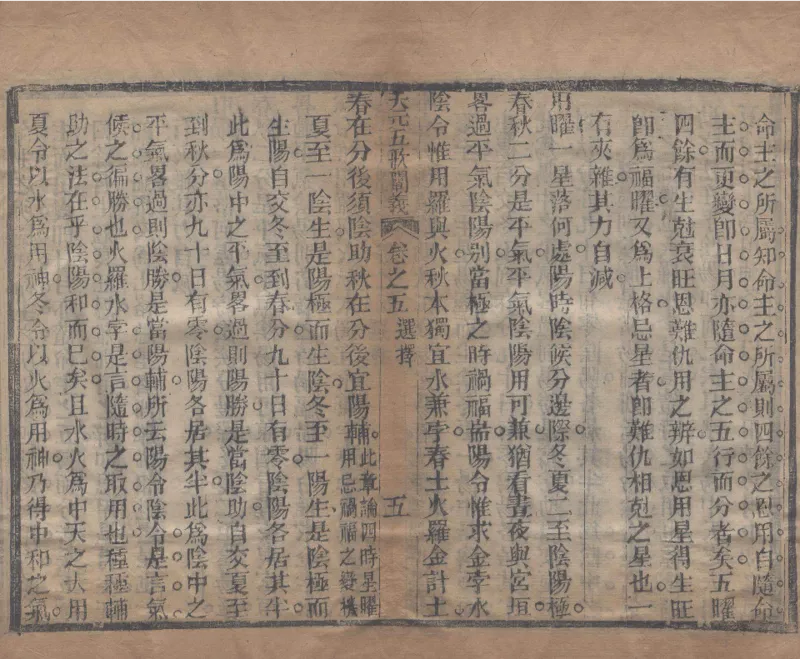 命主之所屬知命主之所屬則四餘之恩用自隨命
主而更變卽日月亦隨命主之五行而分者矣五曜
四餘有生尅衰旺恩難仇用之辨如恩用星得生旺
卽爲福曜又爲上格忌星者卽難仇相尅之星也一
有夾雜其力自減
用曜一星落何處陽時陰候分邊際冬夏二至陰陽極
春秋二分是平氣平氣陰陽用可兼猶看晝夜與宮垣
畧過平氣陰陽別當極之時禍福耑陽令惟求金孛水
陰令惟用羅與火秋本獨宜水兼孛春土火羅金計土
天元五歌闡義 卷之五 選擇 五
春在分後須陰助秋在分後宜陽輔此章論四時星曜用忌禍福之變機
夏至一陰生是陽極而生陰冬至一陽生是陰極而
生陽自交冬至到春分九十日有零陰陽各居其半
此爲陽中之平氣畧過則陽勝是當陰助自交夏至
到秋分亦九十日有零陰陽各居其半此爲陰中之
平氣畧過則陰勝是當陽輔所云陽令陰令是言氣
候之徧勝也火羅水孛是言隨時之取用也種種輔
助之法在乎陰陽和而已矣且水火爲中天之大用
夏令以水爲用神冬令以火爲用神乃得中和之氣